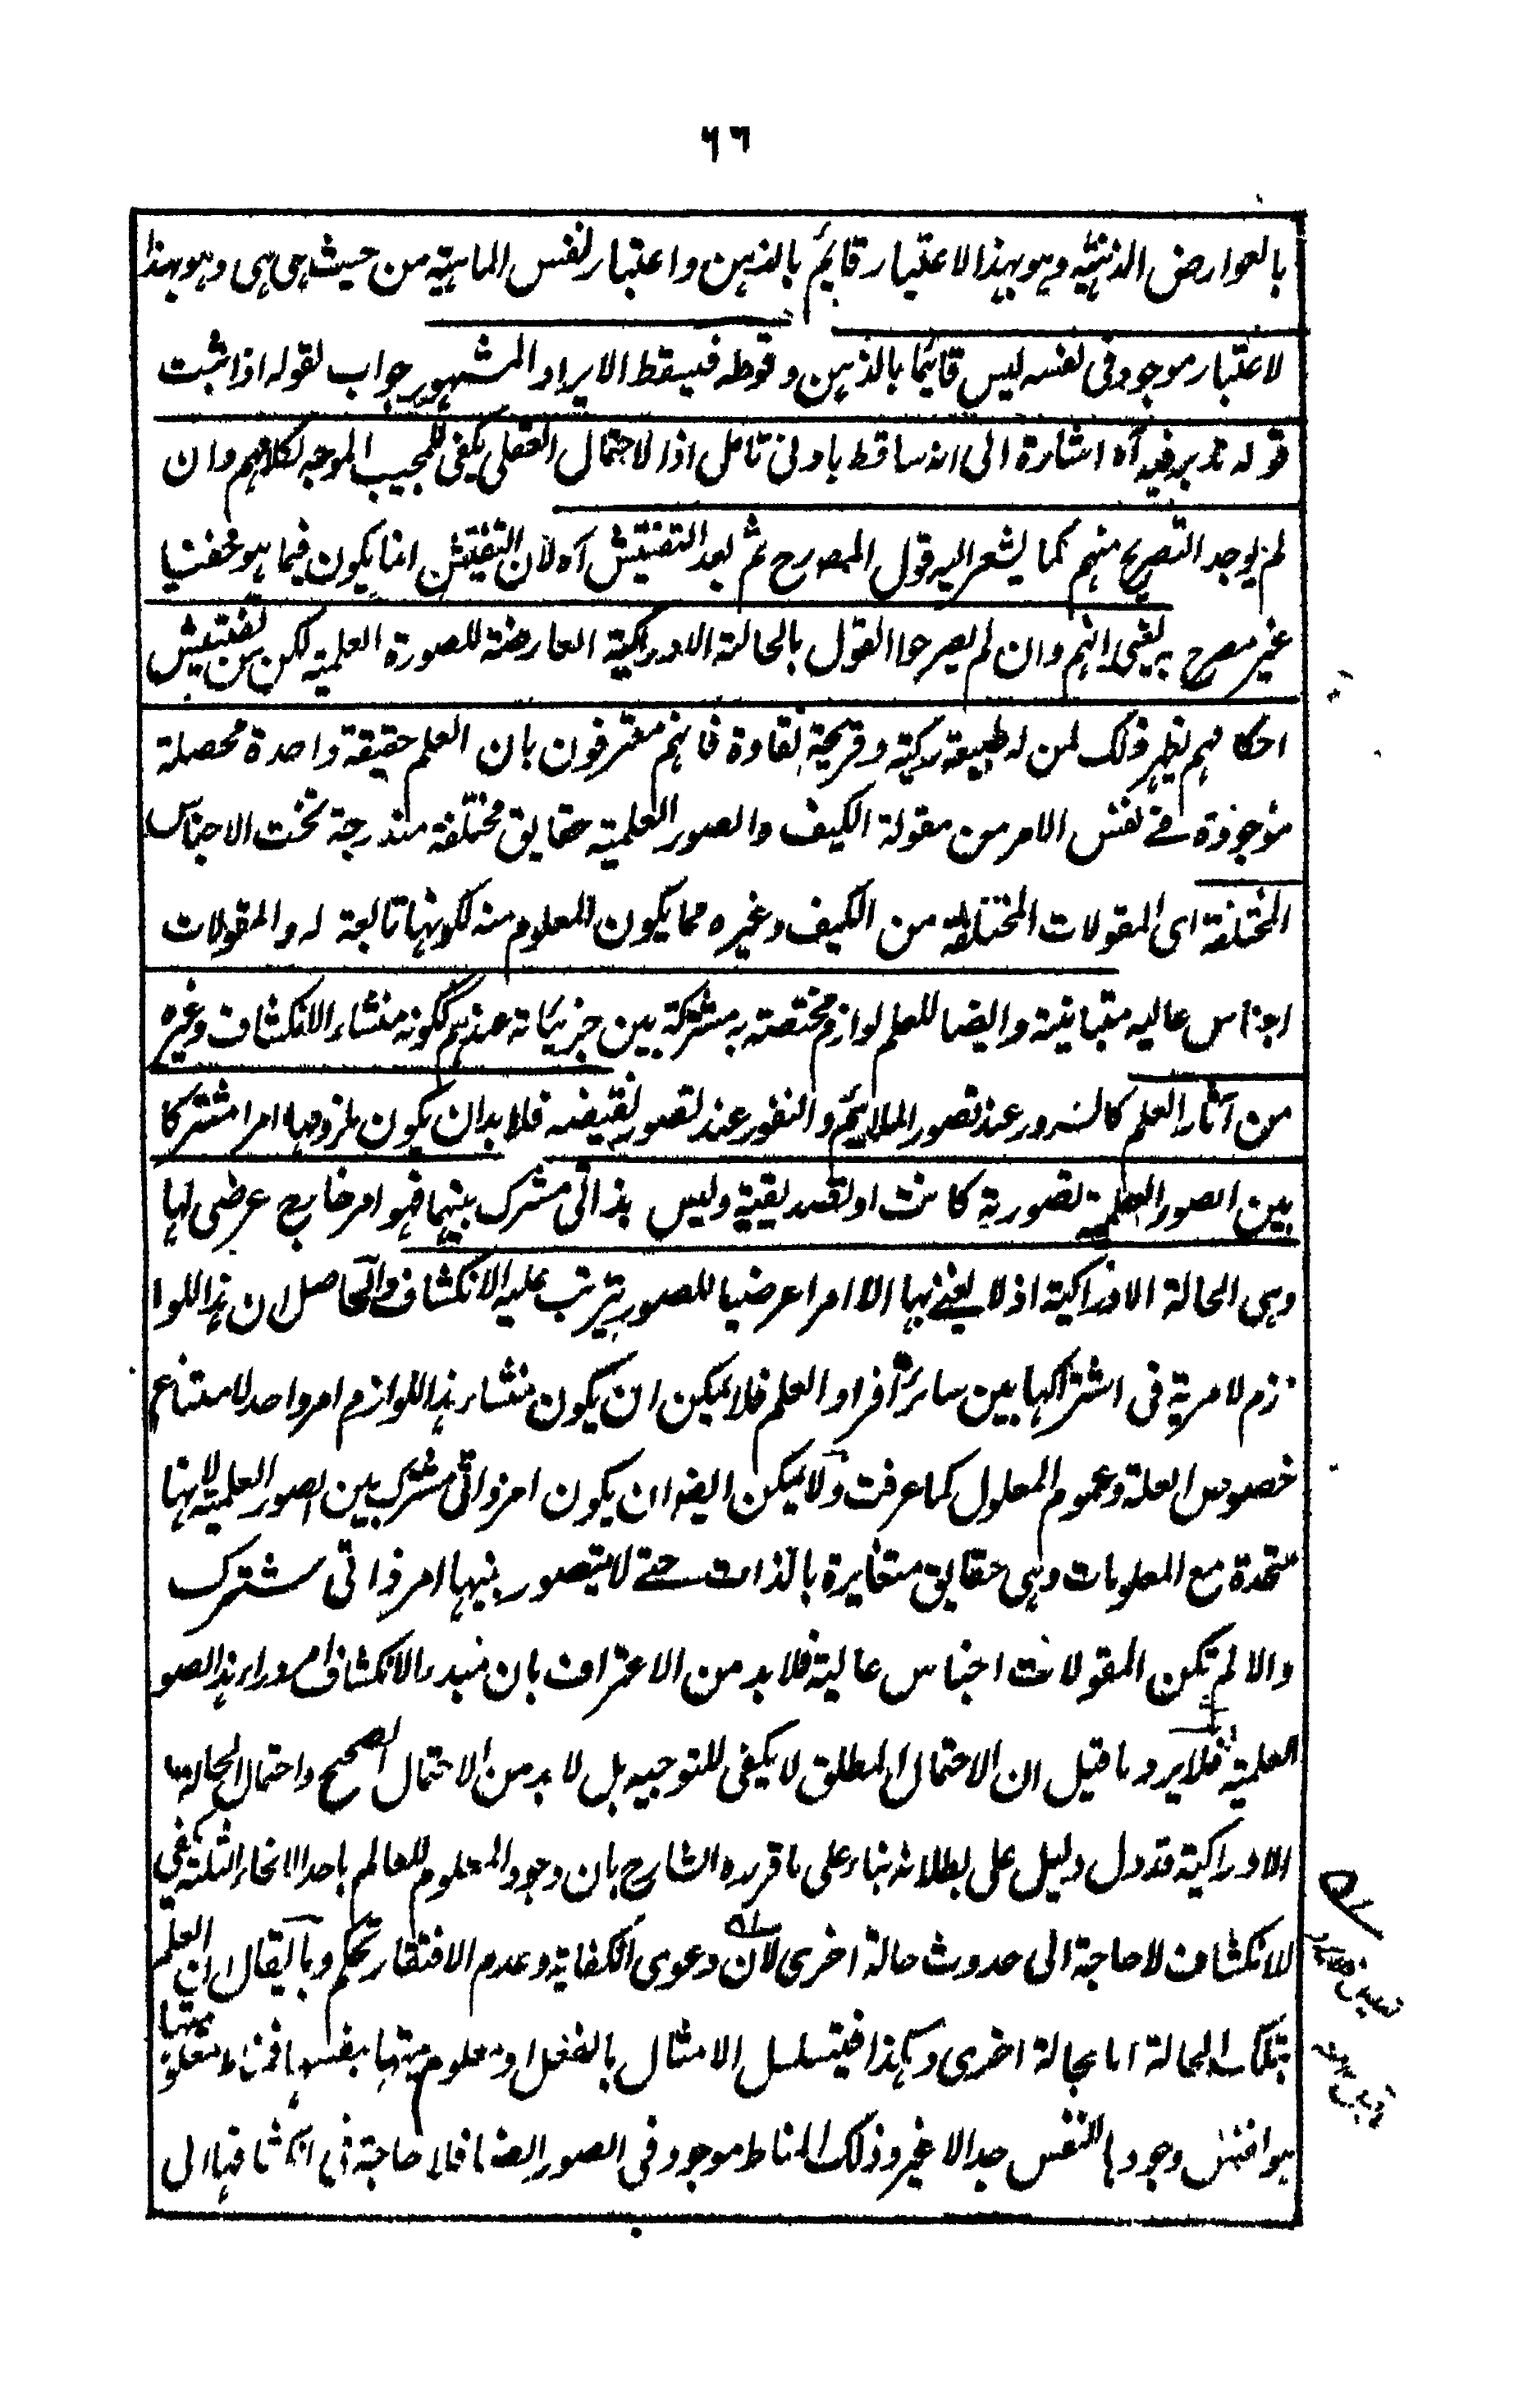 ٦٦
بالعوارض الذهنية وهو بهذا الاعتبار قايم بالذهن واعتبار نفس الماهية من حيث هي هي وهو بهذا
لاعتبار موجود في نفسه ليس قايما بالذهن وقوله فيسقط الايراد المشهور جواب لقوله اذا ثبت
قوله تدبر فيه آه اشارة الى انه ساقط بادنى تامل اذ الاحتمال العقلي يكفى للمجيب الموجه لكلامهم وان
لم يوجد التصريح منهم كما يشعر اليه قول المصرح ثم بعد التفتيش آه لان التفتيش انما يكون فيما هو مخفيا
غير مصرح يعنى انهم وان لم يصرحوا القول بالحالة الادراكية العارضة للصورة العلمية لكن من تفتيش
احكامهم يظهر ذلك لمن له طبيعة زكية وقريحة نقادة فانهم معترفون بان العلم حقيقة واحدة محصلة
موجودة في نفس الامر من مقولة الكيف والصور العلمية حقايق مختلفة مندرجة تحت الاجناس
المختلفة اى المقولات المختلفة من الكيف وغيره مما يكون المعلوم منه لكونها تابعة له والمقولات
اجناس عاليه متباينة وايضا للعلم لوازم مختصة به مشتركة بين جزئياته عندهم ككونه منشاء الانكشاف وغيره
من آثار العلم كالسرور عند تصور الملايم والنفور عند تصور نقيضه فلا بد ان يكون ملزومها امرا مشتركا
بين الصور العلمية تصورية كانت او تصديقية وليس بذاتى مشترك بينهما فهو امر خارج عرضى لها
وهى الحالة الادراكية اذ لا نعنى بها الا امرا عرضيا للصور يترتب عليه الانكشاف والحاصل ان هذا اللوا
زم لا مرية فى اشتراكها بين سائر افراد العلم فلا يمكن ان يكون منشاء هذا اللوازم امر واحد لامتناع
خصوص العلة وعموم المعلول كما عرفت ولا يمكن ايضا ان يكون امر ذاتى مشترك بين الصور العلمية لانها
متحدة مع المعلومات وهى حقايق متغايرة بالذات حتى لا يتصور بينها امر ذاتى مشترك
والا لم تكن المقولات اجناس عالية فلا بد من الاعتراف بان مبدء الانكشاف امر وراء هذا الصو
العلمية فلا يرد ما قيل ان الاحتمال المطلق لا يكفى للتوجيه بل لا بد من الاحتمال الصحيح واحتمال الحالة
الادراكية قد دل دليل على بطلانه بناء على ما قرره الشارح بان وجود المعلوم للعالم باحد الانحاء الثلثة يكفي
للانكشاف لا حاجة الى حدوث حالة اخرى لان دعوى الكفاية وعدم الافتقار تحكم وبما يقال ان العلم
بتلك الحالة اما بحالة اخرى وهكذا فيتسلسل الامثال بالفعل او معلوميتها بنفسها فمناط معلوميتها
هو نفس وجودها للنفس حد الا غير وذلك المناط موجود فى الصور ايضا فلا حاجة فى انكشافها الى